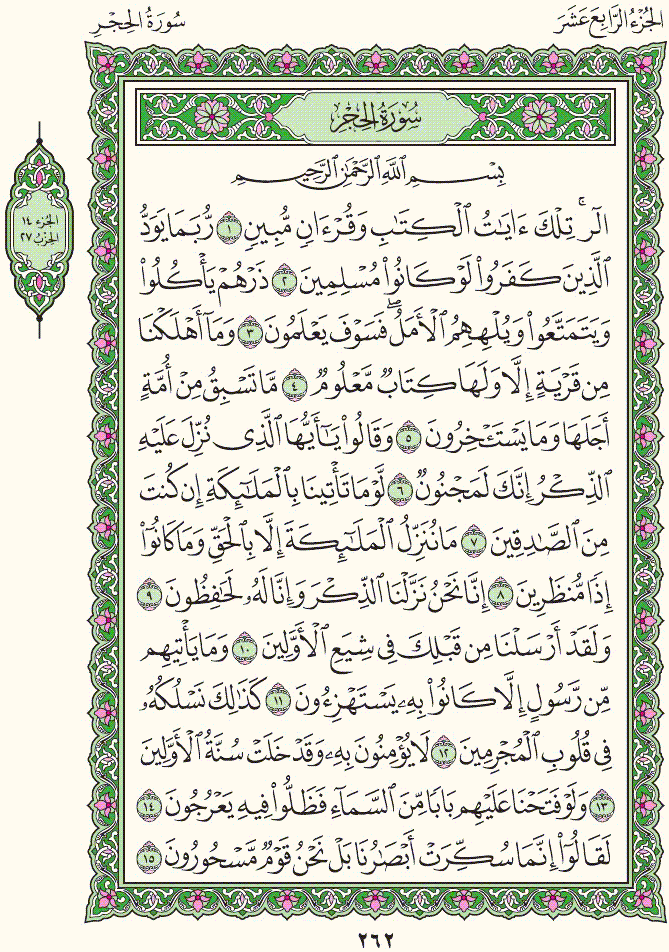 الجُزْءُ الرَّابِعَ عَشَرَ
سُورَةُ الحِجْرِ
سُورَةُ الحِجْرِ
الجزء ١٤
الحزب ٢٧
بِسْمِ ٱللَّهِ ٱلرَّحْمَٰنِ ٱلرَّحِيمِ
الٓرۚ تِلْكَ ءَايَٰتُ ٱلْكِتَٰبِ وَقُرْءَانٍ مُّبِينٍ ١ رُّبَمَا يَوَدُّ
ٱلَّذِينَ كَفَرُوا۟ لَوْ كَانُوا۟ مُسْلِمِينَ ٢ ذَرْهُمْ يَأْكُلُوا۟
وَيَتَمَتَّعُوا۟ وَيُلْهِهِمُ ٱلْأَمَلُۖ فَسَوْفَ يَعْلَمُونَ ٣ وَمَآ أَهْلَكْنَا
مِن قَرْيَةٍ إِلَّا وَلَهَا كِتَابٌ مَّعْلُومٌ ٤ مَّا تَسْبِقُ مِنْ أُمَّةٍ
أَجَلَهَا وَمَا يَسْتَـْٔخِرُونَ ٥ وَقَالُوا۟ يَٰٓأَيُّهَا ٱلَّذِى نُزِّلَ عَلَيْهِ
ٱلذِّكْرُ إِنَّكَ لَمَجْنُونٌ ٦ لَّوْ مَا تَأْتِينَا بِٱلْمَلَٰٓئِكَةِ إِن كُنتَ
مِنَ ٱلصَّٰدِقِينَ ٧ مَا نُنَزِّلُ ٱلْمَلَٰٓئِكَةَ إِلَّا بِٱلْحَقِّ وَمَا كَانُوٓا۟
إِذًا مُّنظَرِينَ ٨ إِنَّا نَحْنُ نَزَّلْنَا ٱلذِّكْرَ وَإِنَّا لَهُۥ لَحَٰفِظُونَ ٩
وَلَقَدْ أَرْسَلْنَا مِن قَبْلِكَ فِى شِيَعِ ٱلْأَوَّلِينَ ١٠ وَمَا يَأْتِيهِم
مِّن رَّسُولٍ إِلَّا كَانُوا۟ بِهِۦ يَسْتَهْزِءُونَ ١١ كَذَٰلِكَ نَسْلُكُهُۥ
فِى قُلُوبِ ٱلْمُجْرِمِينَ ١٢ لَا يُؤْمِنُونَ بِهِۦ وَقَدْ خَلَتْ سُنَّةُ ٱلْأَوَّلِينَ
١٣ وَلَوْ فَتَحْنَا عَلَيْهِم بَابًا مِّنَ ٱلسَّمَآءِ فَظَلُّوا۟ فِيهِ يَعْرُجُونَ ١٤
لَقَالُوٓا۟ إِنَّمَا سُكِّرَتْ أَبْصَٰرُنَا بَلْ نَحْنُ قَوْمٌ مَّسْحُورُونَ ١٥
٢٦٢